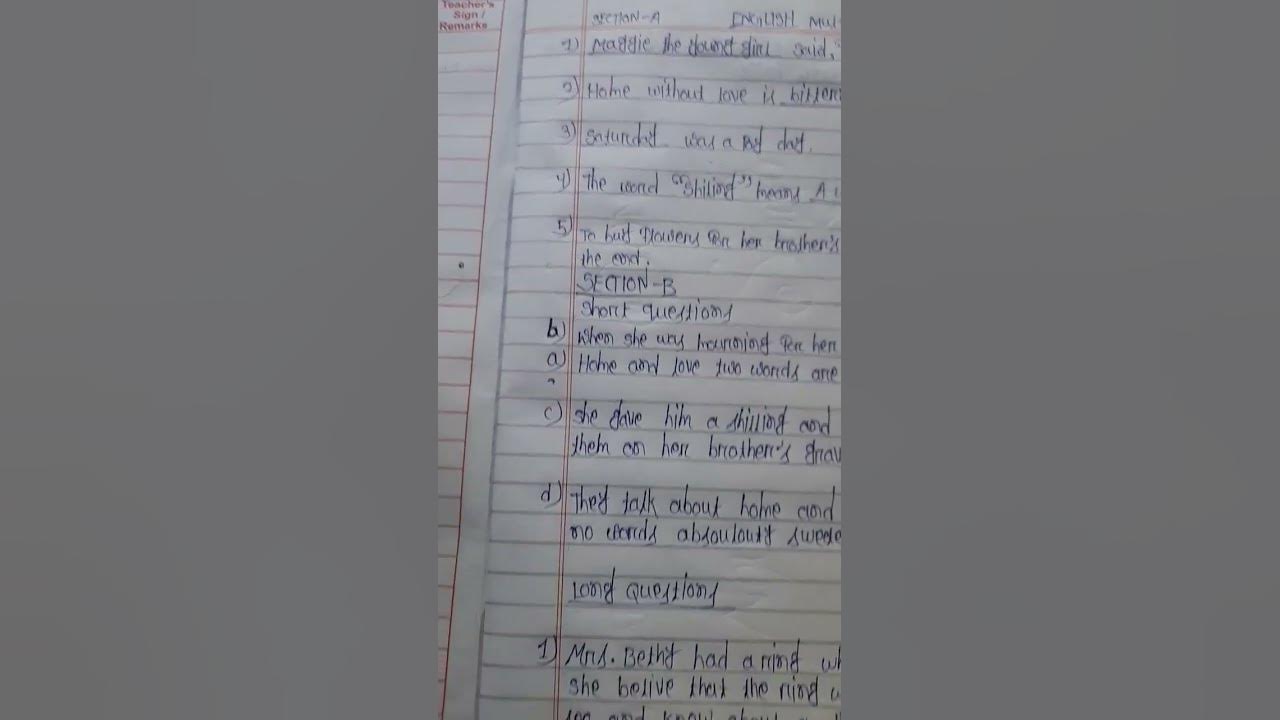 Teacher's
Sign /
Remarks
SECTION-A ENGLISH Mul
1) Maggie the young girl said,
2) Home without love is bitter
3) Saturday was a pay day.
4) The word "Shiling" means A
5) To buy flowers for her brother's
the end.
SECTION-B
Short questions
b) When she was mourning for her
a) Home and love two words are
c) She gave him a shilling and
them on her brother's grav
d) They talk about home and
no words absoulouty sweete
Long Questions
1) Mrs. Bethy had a ring wh
she belive that the ring
and know about